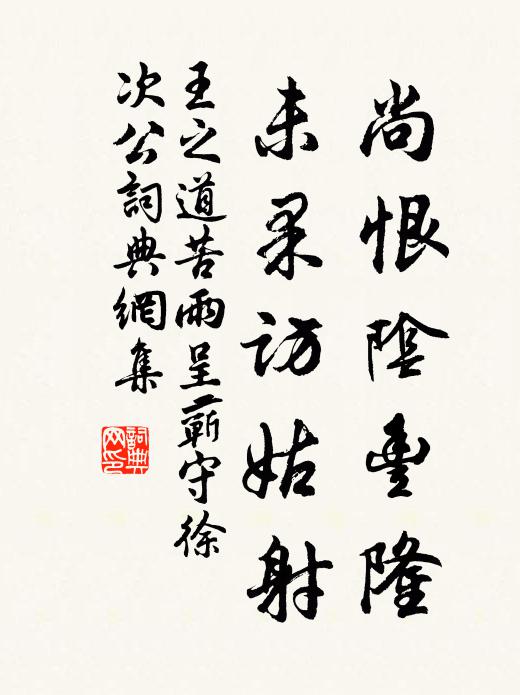 尚恨陰豐隆
未果訪姑射
王之道苦雨呈蘄守徐
次公詞典網集
詞典
网印